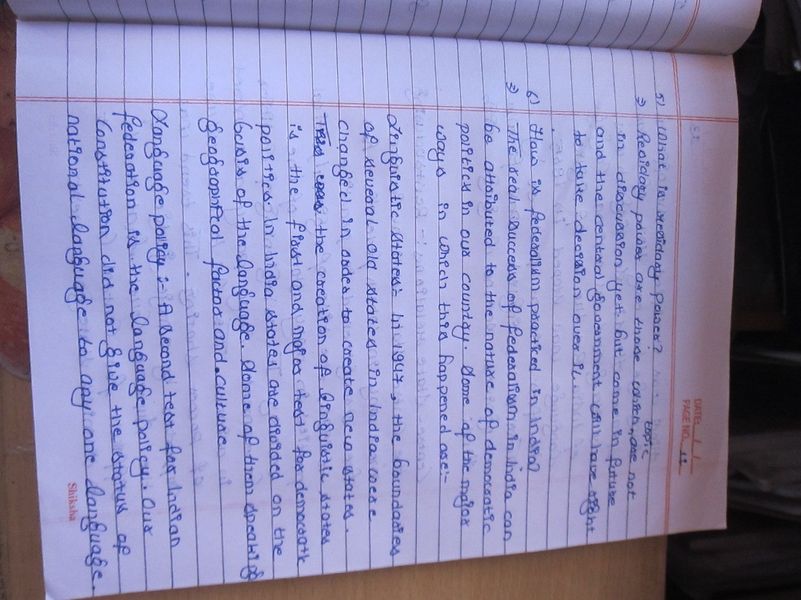 DATE: / /
PAGE NO. 12
5) What is residary power?
topic
⇒ Residary power are those which are not
in discussion yet but come in future
and the central government will have right
to take decision over it.
6) How is federalism practiced in India?
⇒ The real success of federalism in India can
be attributed to the nature of democratic
politics in our country. Some of the major
ways in which this happened are:-
Linguistic states:- In 1947, the boundaries
of several old states in India were
changed in order to create new states.
the creation of linguistic states
is the first and major test for democratic
politics in India states are divided on the
basis of the language. Some of them speaking
geographical factor and culture
Language policy:- A second test for Indian
federation is the language policy. Our
Constitution did not give the status of
national language to any one language.
Shiksha